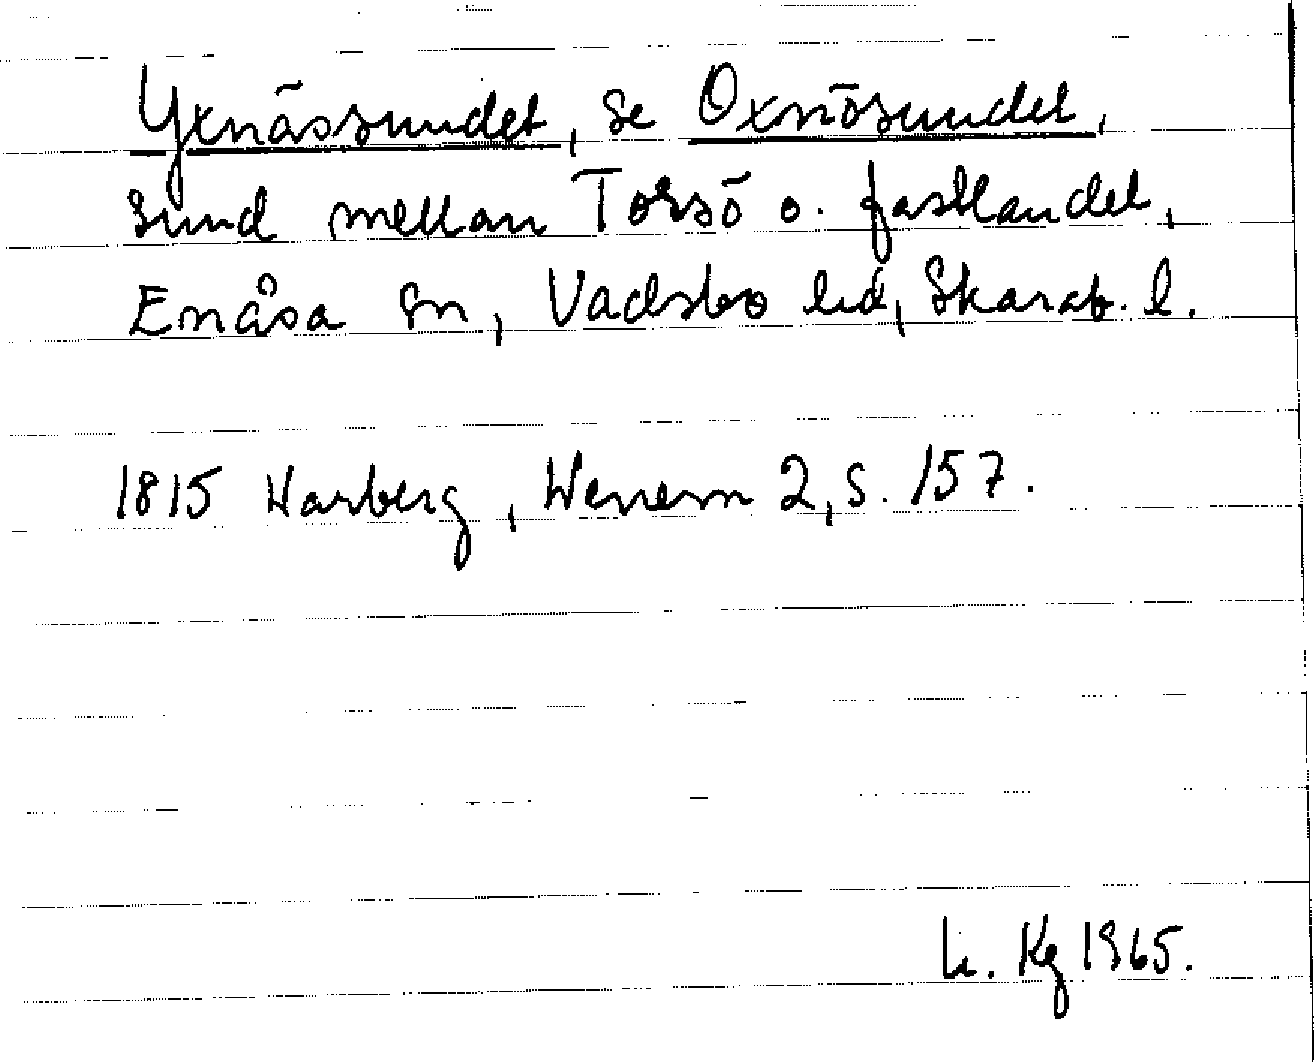 Yxnässundet, se Oxnösundet,
sund mellan Torsö o. fastlandet,
Enåsa sn, Vadsbo hd, Skarab. l.
1815 Warberg, Wenern 2, s. 157.
Li. Kg 1965.